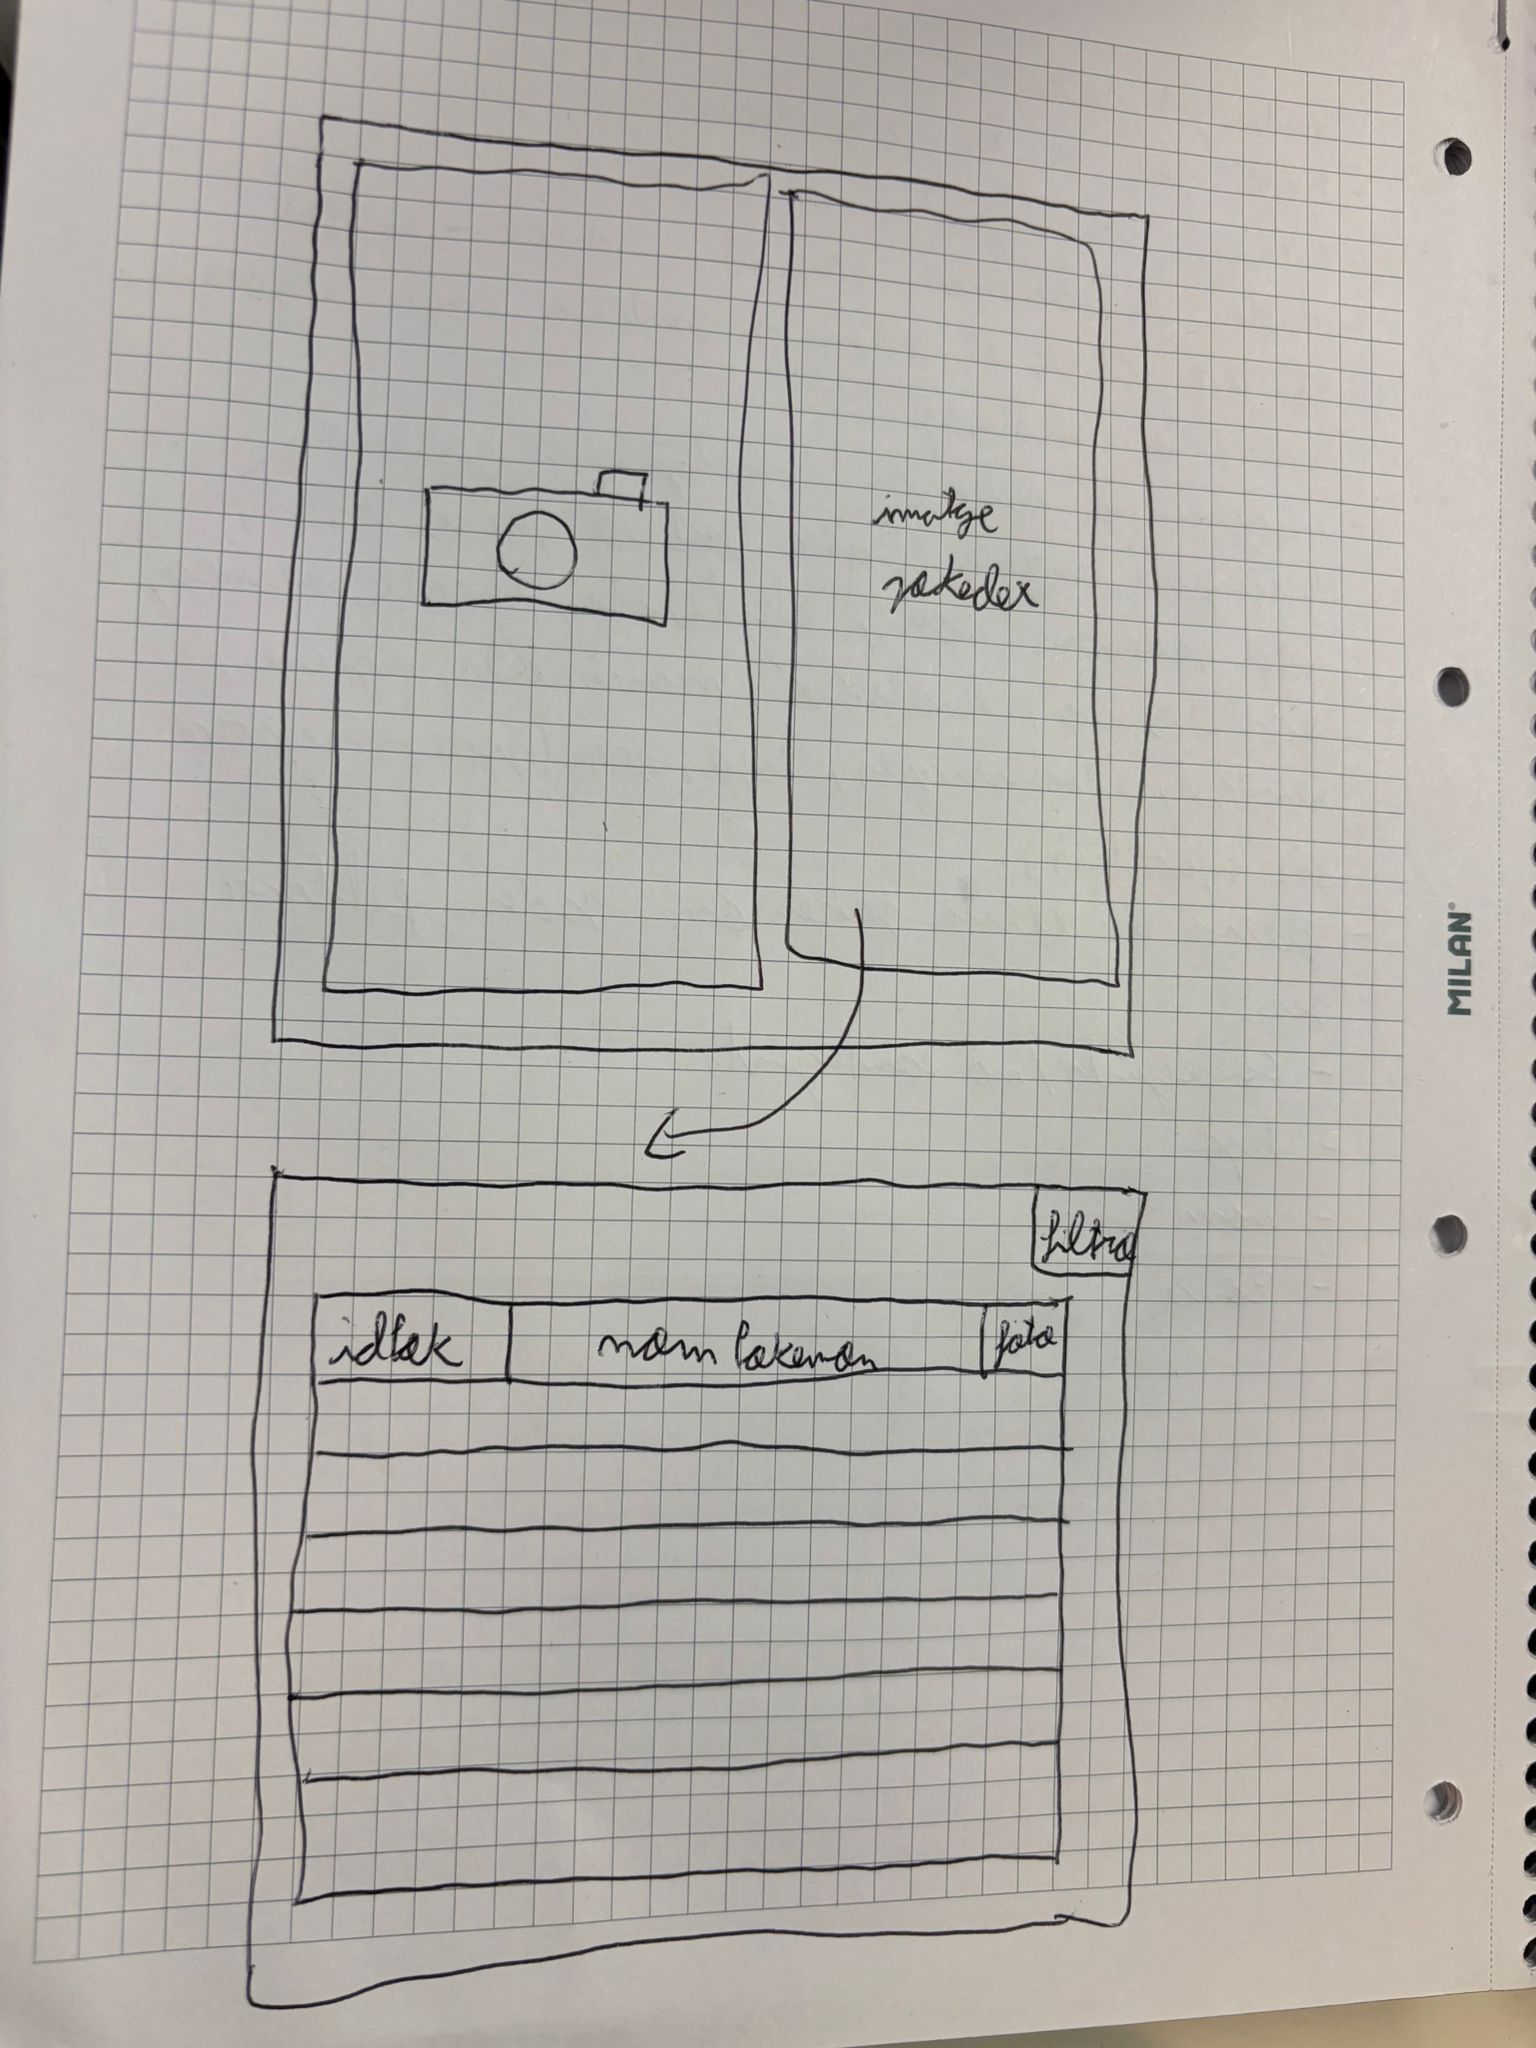 imatge
pokedex
filtro
idPok
nom Pokemon
foto
MILAN®